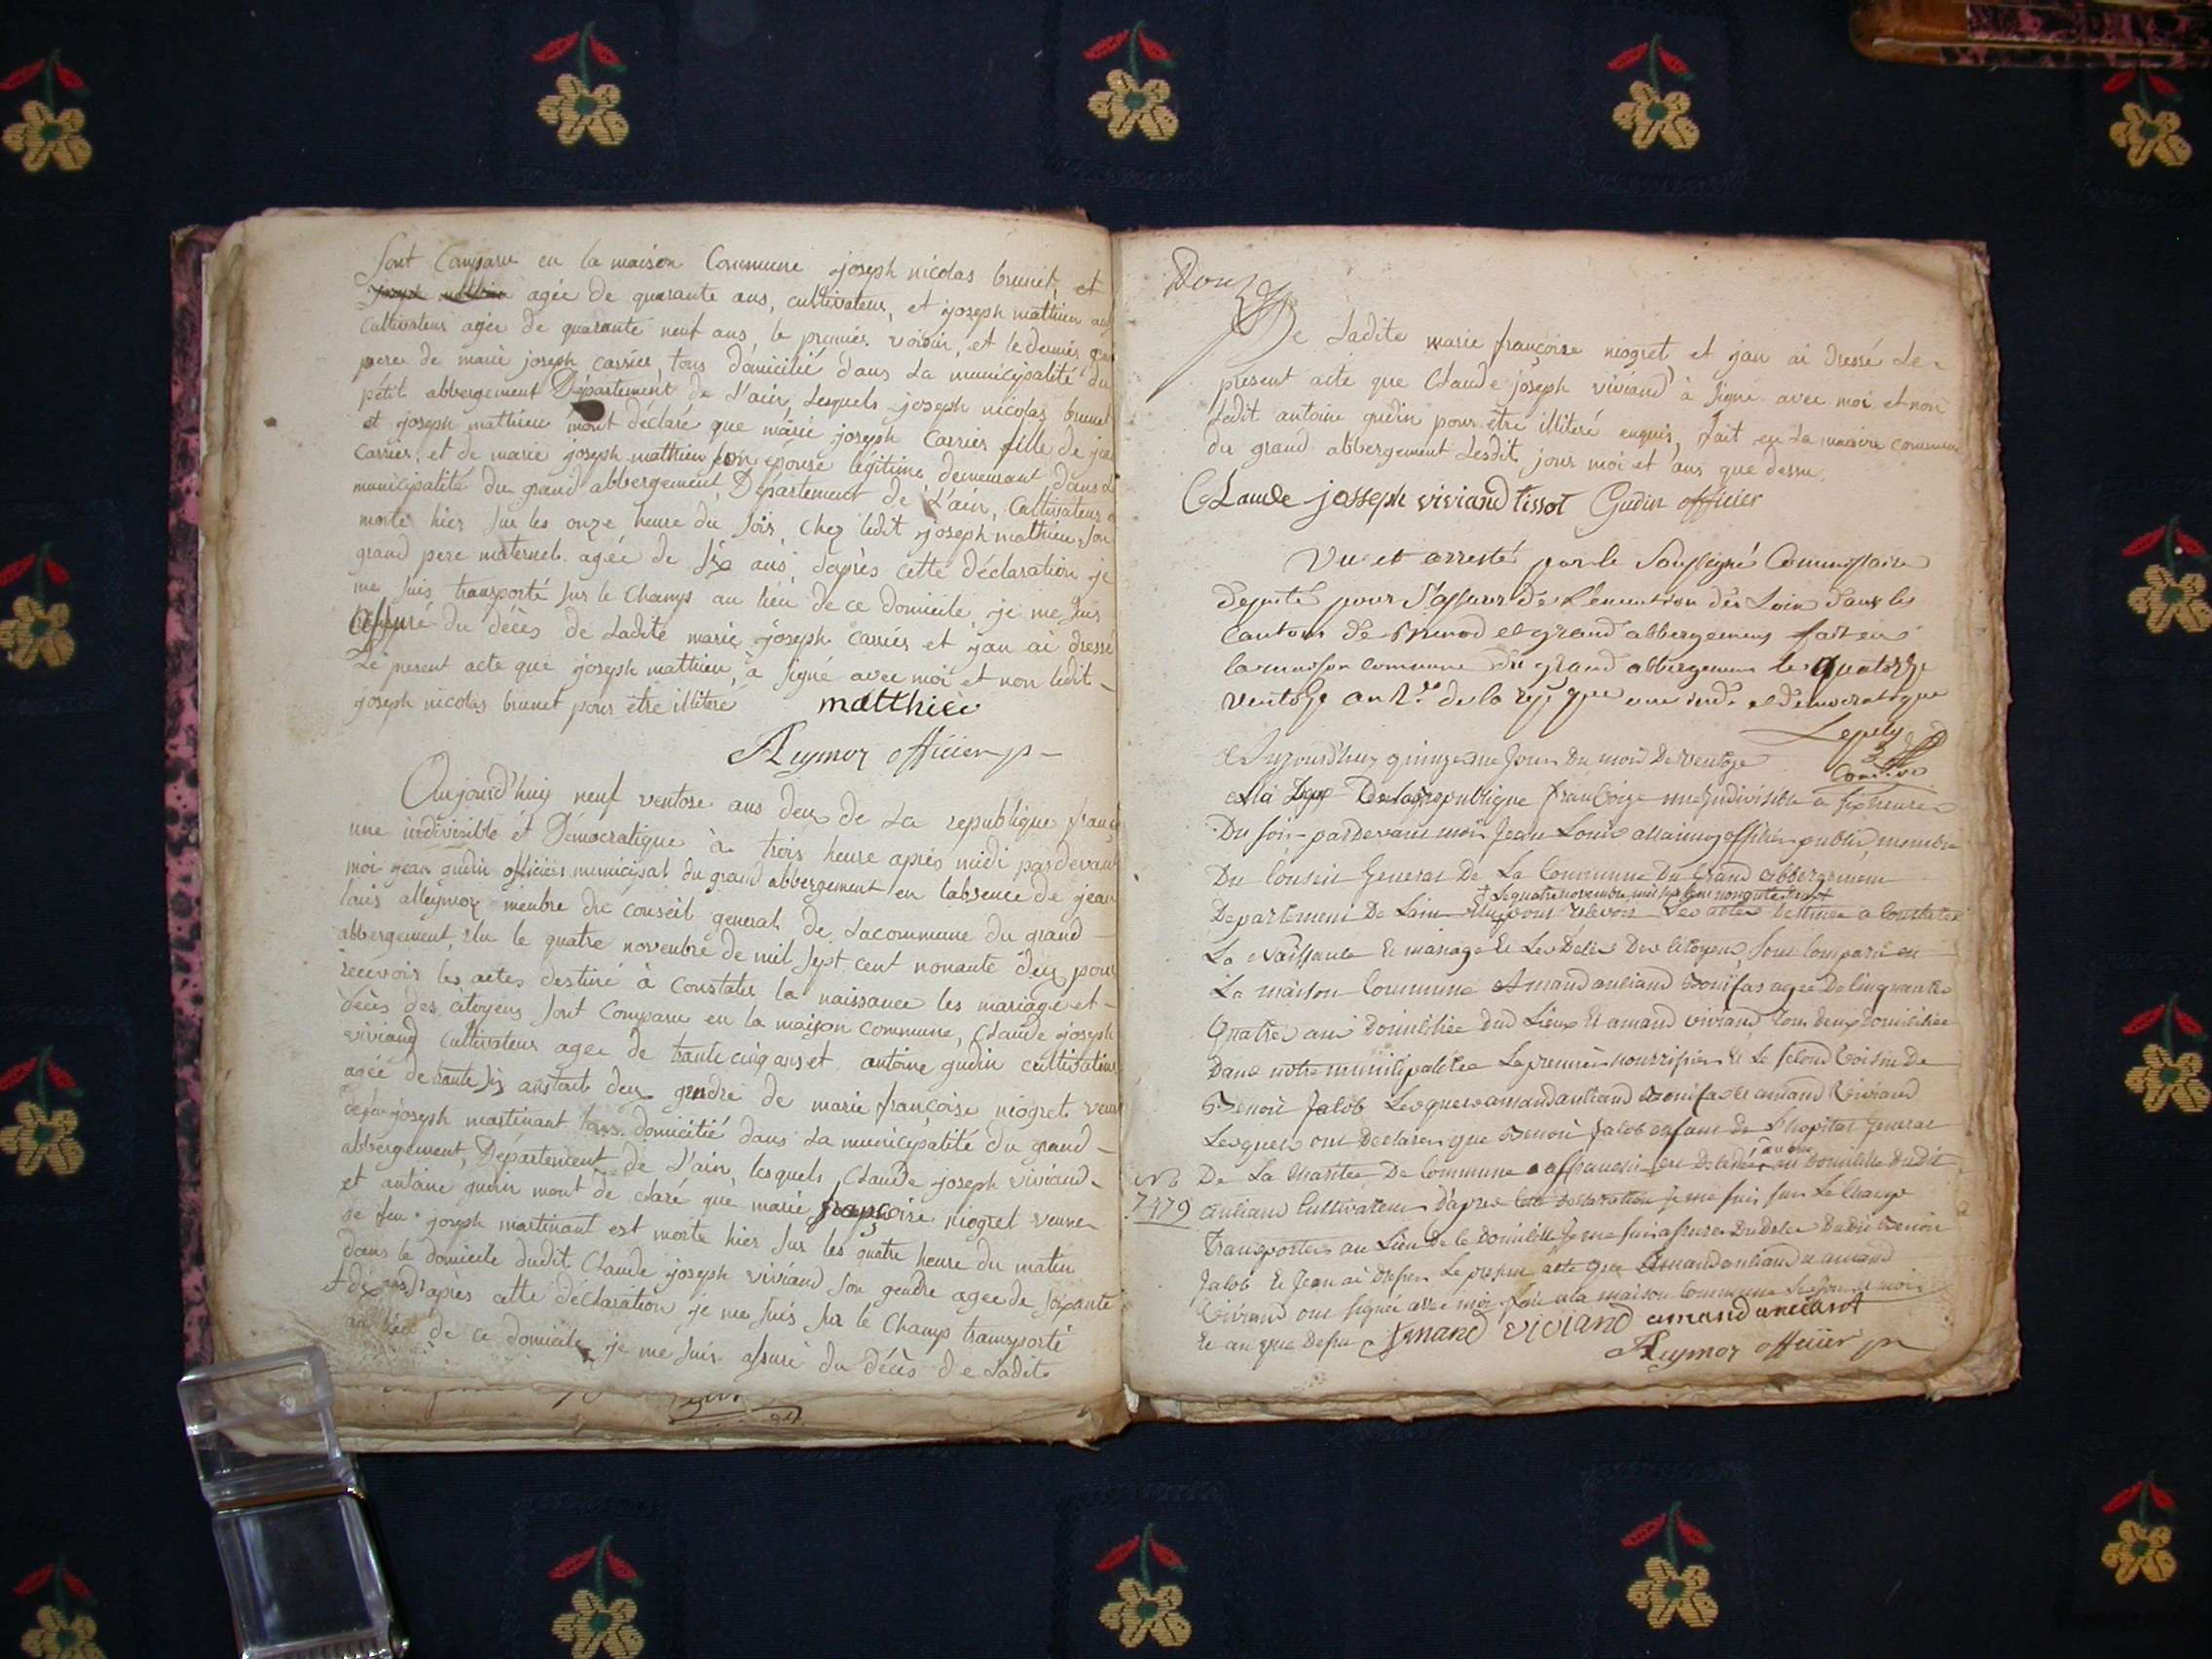 Sont Comparu en la maison Commune joseph nicolas brunet, et
agée de quarante ans, cultivateur, et joseph mathieu
Cultivateur agée de quarante neuf ans, le premier voisin, et le dernier
pere de marie joseph carrier, tous domicilié dans la municipalité du
petit abbergement Département de L'ain, Lesquels joseph nicolas brunet
et joseph mathieu mont déclaré que marie joseph Carrier fille de
Carrier, et de marie joseph mathieu son épouse légitime, demeurant dans
municipalité du grand abbergement, Département de L'ain, Cultivateur
morte hier sur les onze heure du soir, chez ledit joseph mathieu son
grand pere maternel agée de six ans, d'après cette déclaration je
me suis transporté sur le Champs au lieu de ce domicile, je me suis
assuré du décès de Ladite marie joseph carrier et jan ai dressé
Le present acte que joseph mathieu, à signé avec moi et non ledit
joseph nicolas brunet pour etre illiteré matthieu
officier p
Aujourd'huy neuf ventose ans deux de La republique
une indivisible et Démocratique à trois heure après midi pardevant
moi jean gudin officier municipal du grand abbergement en labsence de jean
louis alleymoz menbre du conseil general de Lacommune du grand
abbergement, Elu le quatre novenbre de mil sept cent nonante deux pour
recevoir les actes destiné à constater la naissance les mariage et
décès des citoyens sont Comparu en la maison commune, Claude joseph
viviand cultivateur agee de trante cinq ans et antoine gudin cultivateur
agée de trante six ans tout deux gendre de marie françoise niogret
de feu joseph martinant tous domicilié dans La municipalité du grand
abbergement, Département de L'ain, lesquels Claude joseph viviand
et antoine gudin mont de claré que marie françoise niogret veuve
de feu joseph martinant est morte hier sur les quatre heure du matin
dans le domicile dudit Claude joseph viviand son gendre agee de soixante
dix ans d'après cette déclaration je me suis sur le Champ transporté
au lieu de ce domicile je me suis assuré du décès de Ladite
Douze
De Ladite marie françoise niogret et jan ai dressé Le
present acte que Claude joseph viviand à signé avec moi et non
Ledit antoine gudin pour etre illiteré enquis, fait en La maison commune
du grand abbergement Lesdit jour moi et ans que dessu
CLaude josseph viviand tissot Gudin officier
Vu et arresté par le Soussigné Commissaire
deputé pour S'assurer de L'execution des Loix dans les
Cantons de Brenod et grand abbergement fait en
la maison commune du grand abbergement le quatorze
ventose an 2 de la une et democratique
Aujourd'huy quinzeme Jour Du mois De ventoze
De la republique francoize une Indivisible a heure
Du soir pardevant moi Jean Louis officier public membre
Du Conseil General De La Commune Du Grand abbergement
Le quatre novembre
Departement De Lain pour relevoir Les actes Destinee a Constater
La Naissance Le mariage Et Les Deces Des Citoyens, sont Comparu en
La maison Commune Amand Bonifas agee De Cinquante
Quatre ans Domiciliee Dud Lieux Et amand viviand tous deux Domiciliee
Dans notre municipalitee Le premier nourrisier Et Le second voisin De
Benoit Jacob Lesquels amand Bonifas Et amand viviand
Lesquels ont Declarer que Benoit Jacob enfant De L'hopital General
De La Charitee De Commune affranchie est Decedé au Domicille dudit
No
7479
Cultivateur D'apres Cette Declaration Je me suis sur Le Champ
Transporter au Lieu De Ce Domicille Je me suis assurer Du Deces Dudit Benoit
Jacob Et Jean ai Dresser Le present acte que Amand Et amand
Viviand ont Signée avec moi fait a la maison Commune
Et an que Dessu Amand VIVIAND amand
officier p